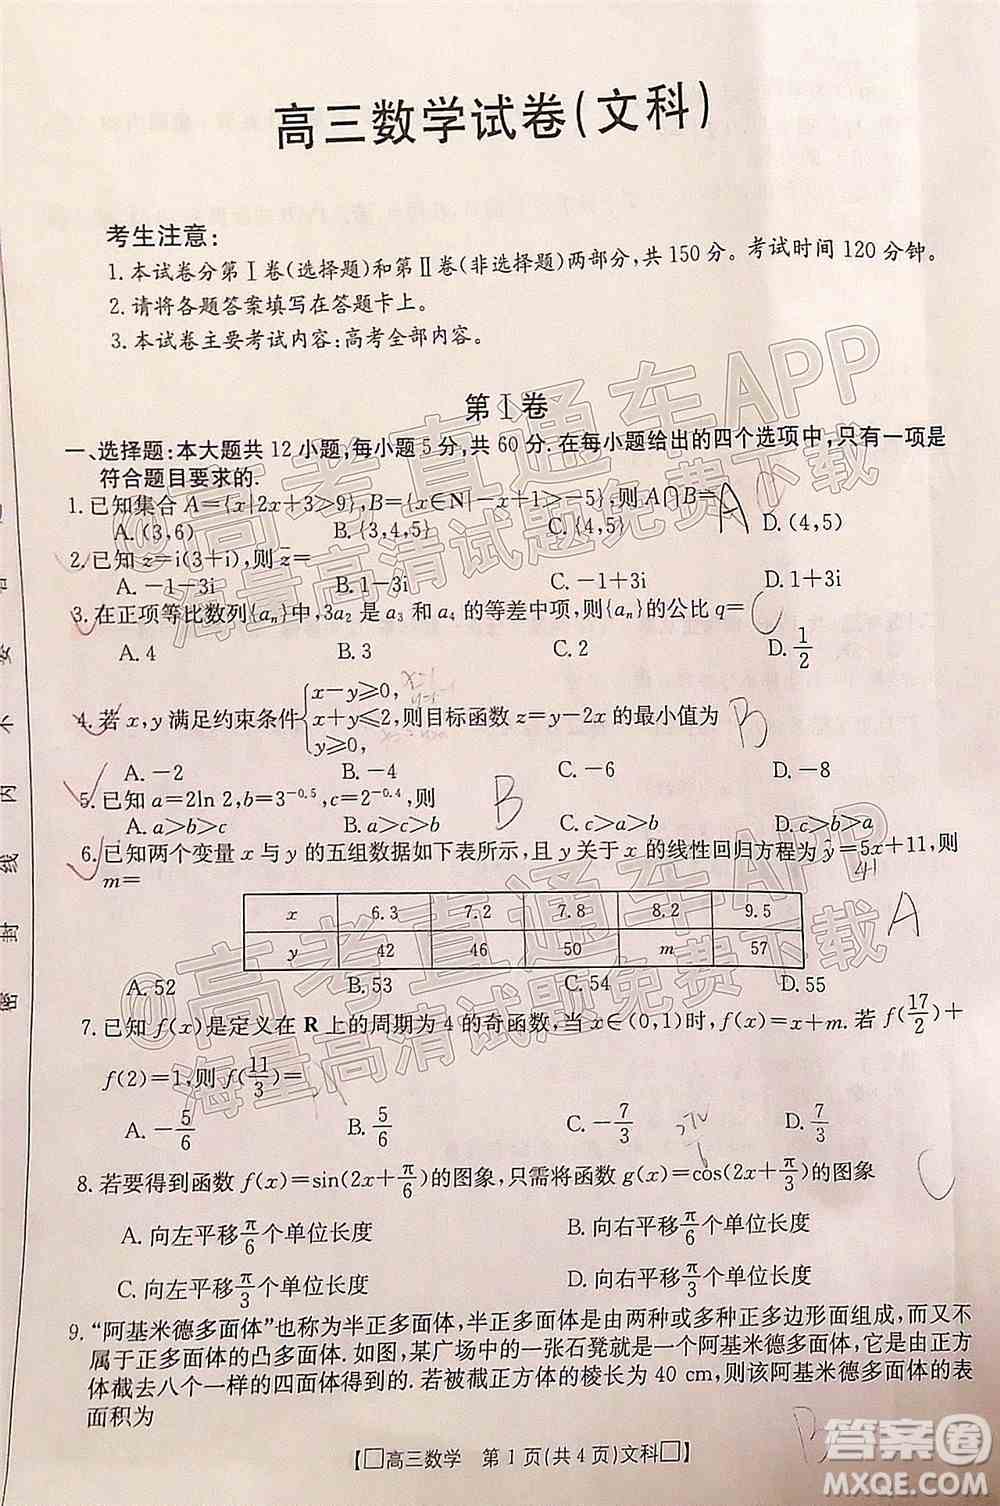 高三数学试卷(文科)
考生注意:
1.本试卷分第Ⅰ卷(选择题)和第Ⅱ卷(非选择题)两部分,共150分。考试时间120分钟。
2.请将各题答案填写在答题卡上。
3.本试卷主要考试内容:高考全部内容。
第Ⅰ卷
一、选择题:本大题共12小题,每小题5分,共60分.在每小题给出的四个选项中,只有一项是
符合题目要求的.
1.已知集合A={x|2x+3>9},B={x∈N|-x+1>-5},则A∩B= A
A.(3,6) B.{3,4,5} C.{4,5} D.(4,5)
2.已知z=i(3+i),则z̄=
A.-1-3i B.1-3i C.1+3i D.-1+3i
3.在正项等比数列{aₙ}中,3a₂是a₃和a₄的等差中项,则{aₙ}的公比q= C
A.4 B.3 C.2 D.1/2
4.若x,y满足约束条件{x-y≥0,
x+y≤2,则目标函数z=y-2x的最小值为 B
y≥0,
A.-2 B.-4 C.-6 D.-8
5.已知a=2ln 2,b=3^{-0.5},c=2^{-0.4},则 B
A.a>b>c B.a>c>b C.c>a>b D.c>b>a
6.已知两个变量x与y的五组数据如下表所示,且y关于x的线性回归方程为ŷ=5x+11,则
m=
x 6.3 7.2 7.8 8.2 9.5
y 42 46 50 m 57
A
A.52 B.53 C.54 D.55
7.已知f(x)是定义在R上的周期为4的奇函数,当x∈(0,1)时,f(x)=x+m.若f(17/2)+
f(2)=1,则f(11/3)=
A.-5/6 B.5/6 C.-7/3 D.7/3
8.若要得到函数f(x)=sin(2x+π/6)的图象,只需将函数g(x)=cos(2x+π/3)的图象 C
A.向左平移π/6个单位长度 B.向右平移π/6个单位长度
C.向左平移π/3个单位长度 D.向右平移π/3个单位长度
9.“阿基米德多面体”也称为半正多面体,半正多面体是由两种或多种正多边形面组成,而又不
属于正多面体的凸多面体.如图,某广场中的一张石凳就是一个阿基米德多面体,它是由正方
体截去八个一样的四面体得到的.若被截正方体的棱长为40 cm,则该阿基米德多面体的表
面积为
【□高三数学 第1页(共4页)文科□】
密封线内不要
@高考直通车APP
海量高清试题免费下载
@高考直通车APP
海量高清试题免费下载
答案圈
MXQE.COM